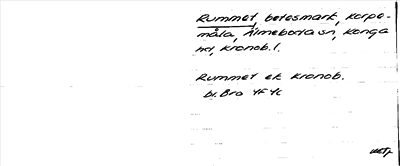 Rummet, betesmark, Korpa-
måla, Almeboda sn, Konga
hd, Kronob. l.
Rummet ek Kronob.
bl. Bro 4F 4c